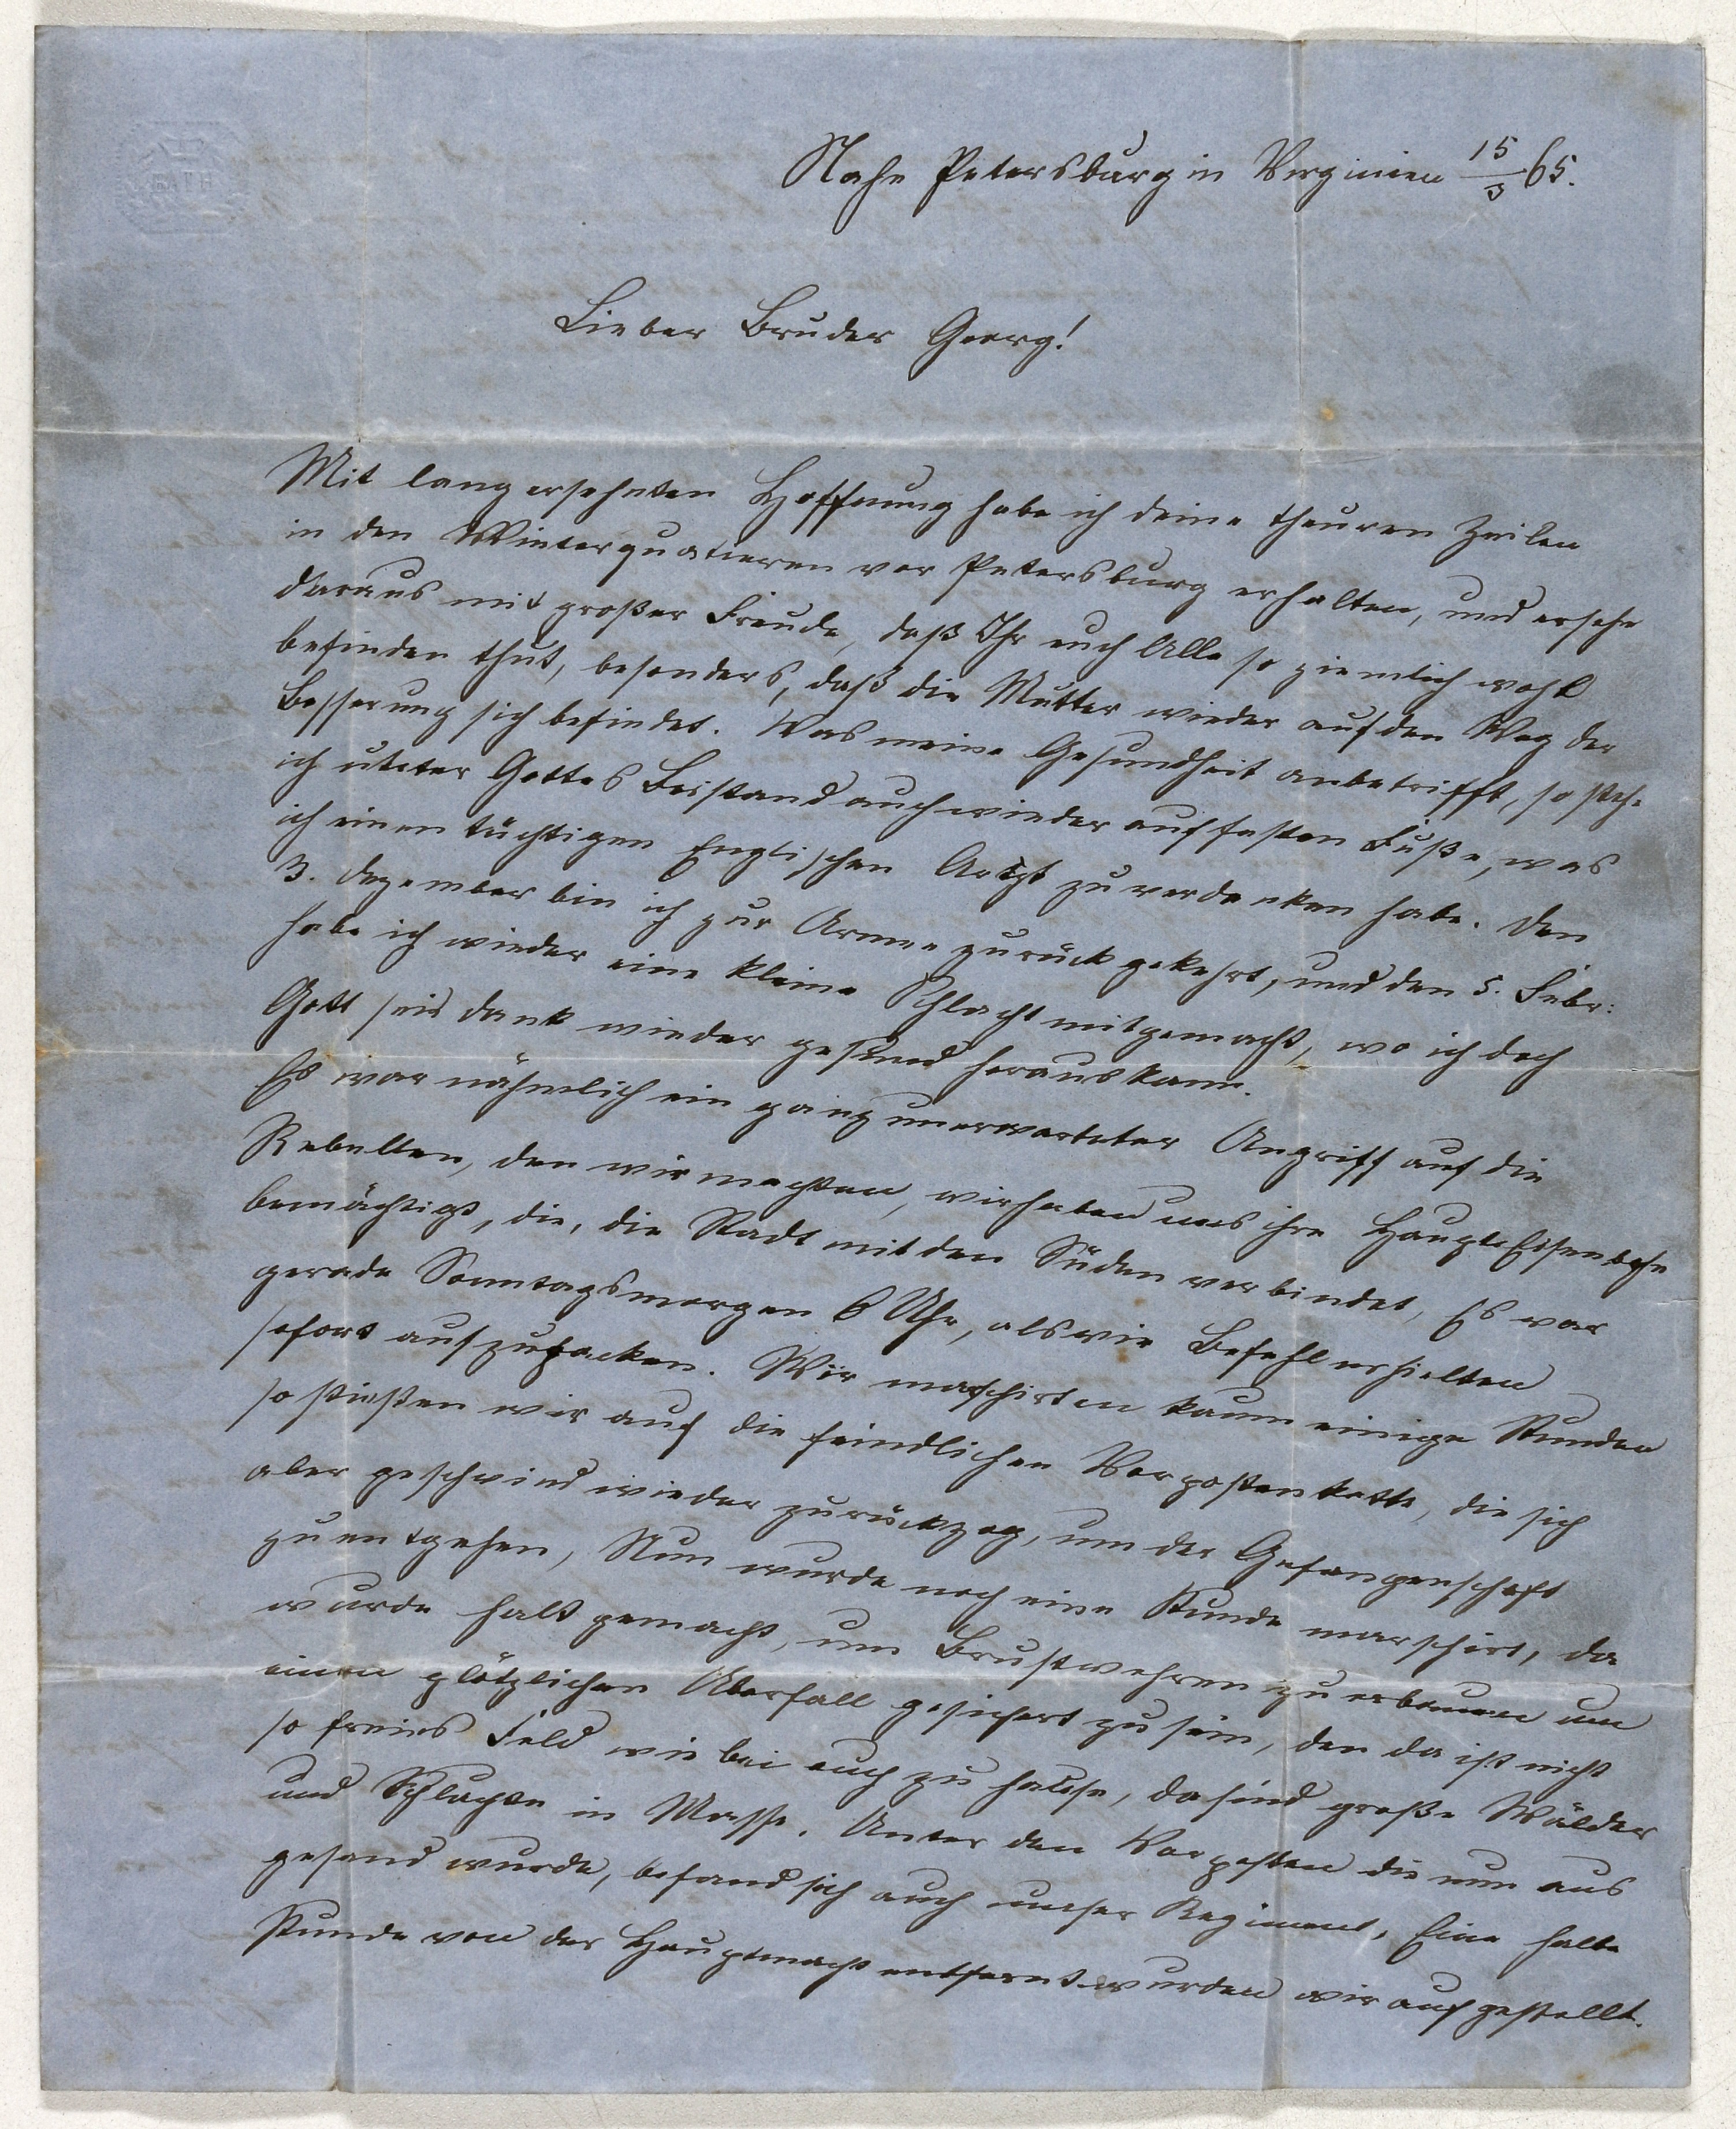 BATH
Nahe Petersburg in Virginien 15/3 65.
Lieber Bruder Georg!
Mit lang ersehnten Hoffnung habe ich deine theuren Zeilen
in den Winterquatieren vor Petersburg erhalten, und ersehe
daraus mit großer Freude, daß Ihr euch Alle so ziemlich wohl
befinden thut, besonders, daß die Mutter wieder auf den Weg der
Besserung sich befindet. Was meine Gesundheit anbetrifft, so stehe
ich unter Gottes Beistand auch wieder auf festen Fuße, was
ich einen tüchtigen Englischen Arzt zu verdanken habe. Den
3. Dezember bin ich zur Armee zurück gekehrt, und den 5. Febr:
habe ich wieder eine kleine Schlacht mitgemacht, wo ich doch
Gott seis dank wieder gesund heraus kam.
Es war nähmlich ein ganz unerwarteter Angriff auf die
Rebellen, den wir machten, wir haben uns ihre Haupt-Eisenbahn
bemächtigt, die, die Stadt mit den Süden verbindet, Es war
gerade Sonntagsmorgen 6 Uhr, als wir Befehl erhielten
sofort aufzupacken. Wir marschirten kaum einige Stunden
so stießen wir auf die feindlichen Vorpostenkette, die sich
aber geschwind wieder zurückzog, um der Gefangenschaft
zu entgehen, Nun wurde noch eine Stunde marschirt, da
wurde halt gemacht, um Brustwehren zu erbauen um
einen plötzlichen Überfall gesichert zu sein, den da ist nicht
so freies Feld wie bei euch zu hause, da sind große Wälder
und Schluchten in Masse. Unter den Vorposten die nun aus
gesand wurde, befand sich auch unser Regiment, Eine halbe
Stunde von der Hauptmacht entfernt wurden wir aufgestellt.